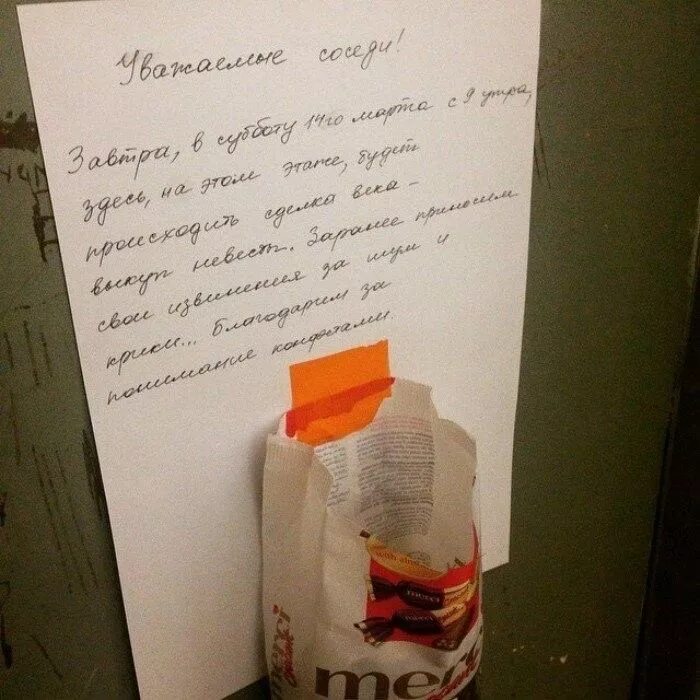 Уважаемые соседи!
Завтра, в субботу 14го марта с 9 утра,
здесь, на этом этаже, будет
происходить сделка века –
выкуп невесты. Заранее приносим
свои извинения за шум и
крики... Благодарим за
понимание конфетами.
with almo
merci
merci
merci